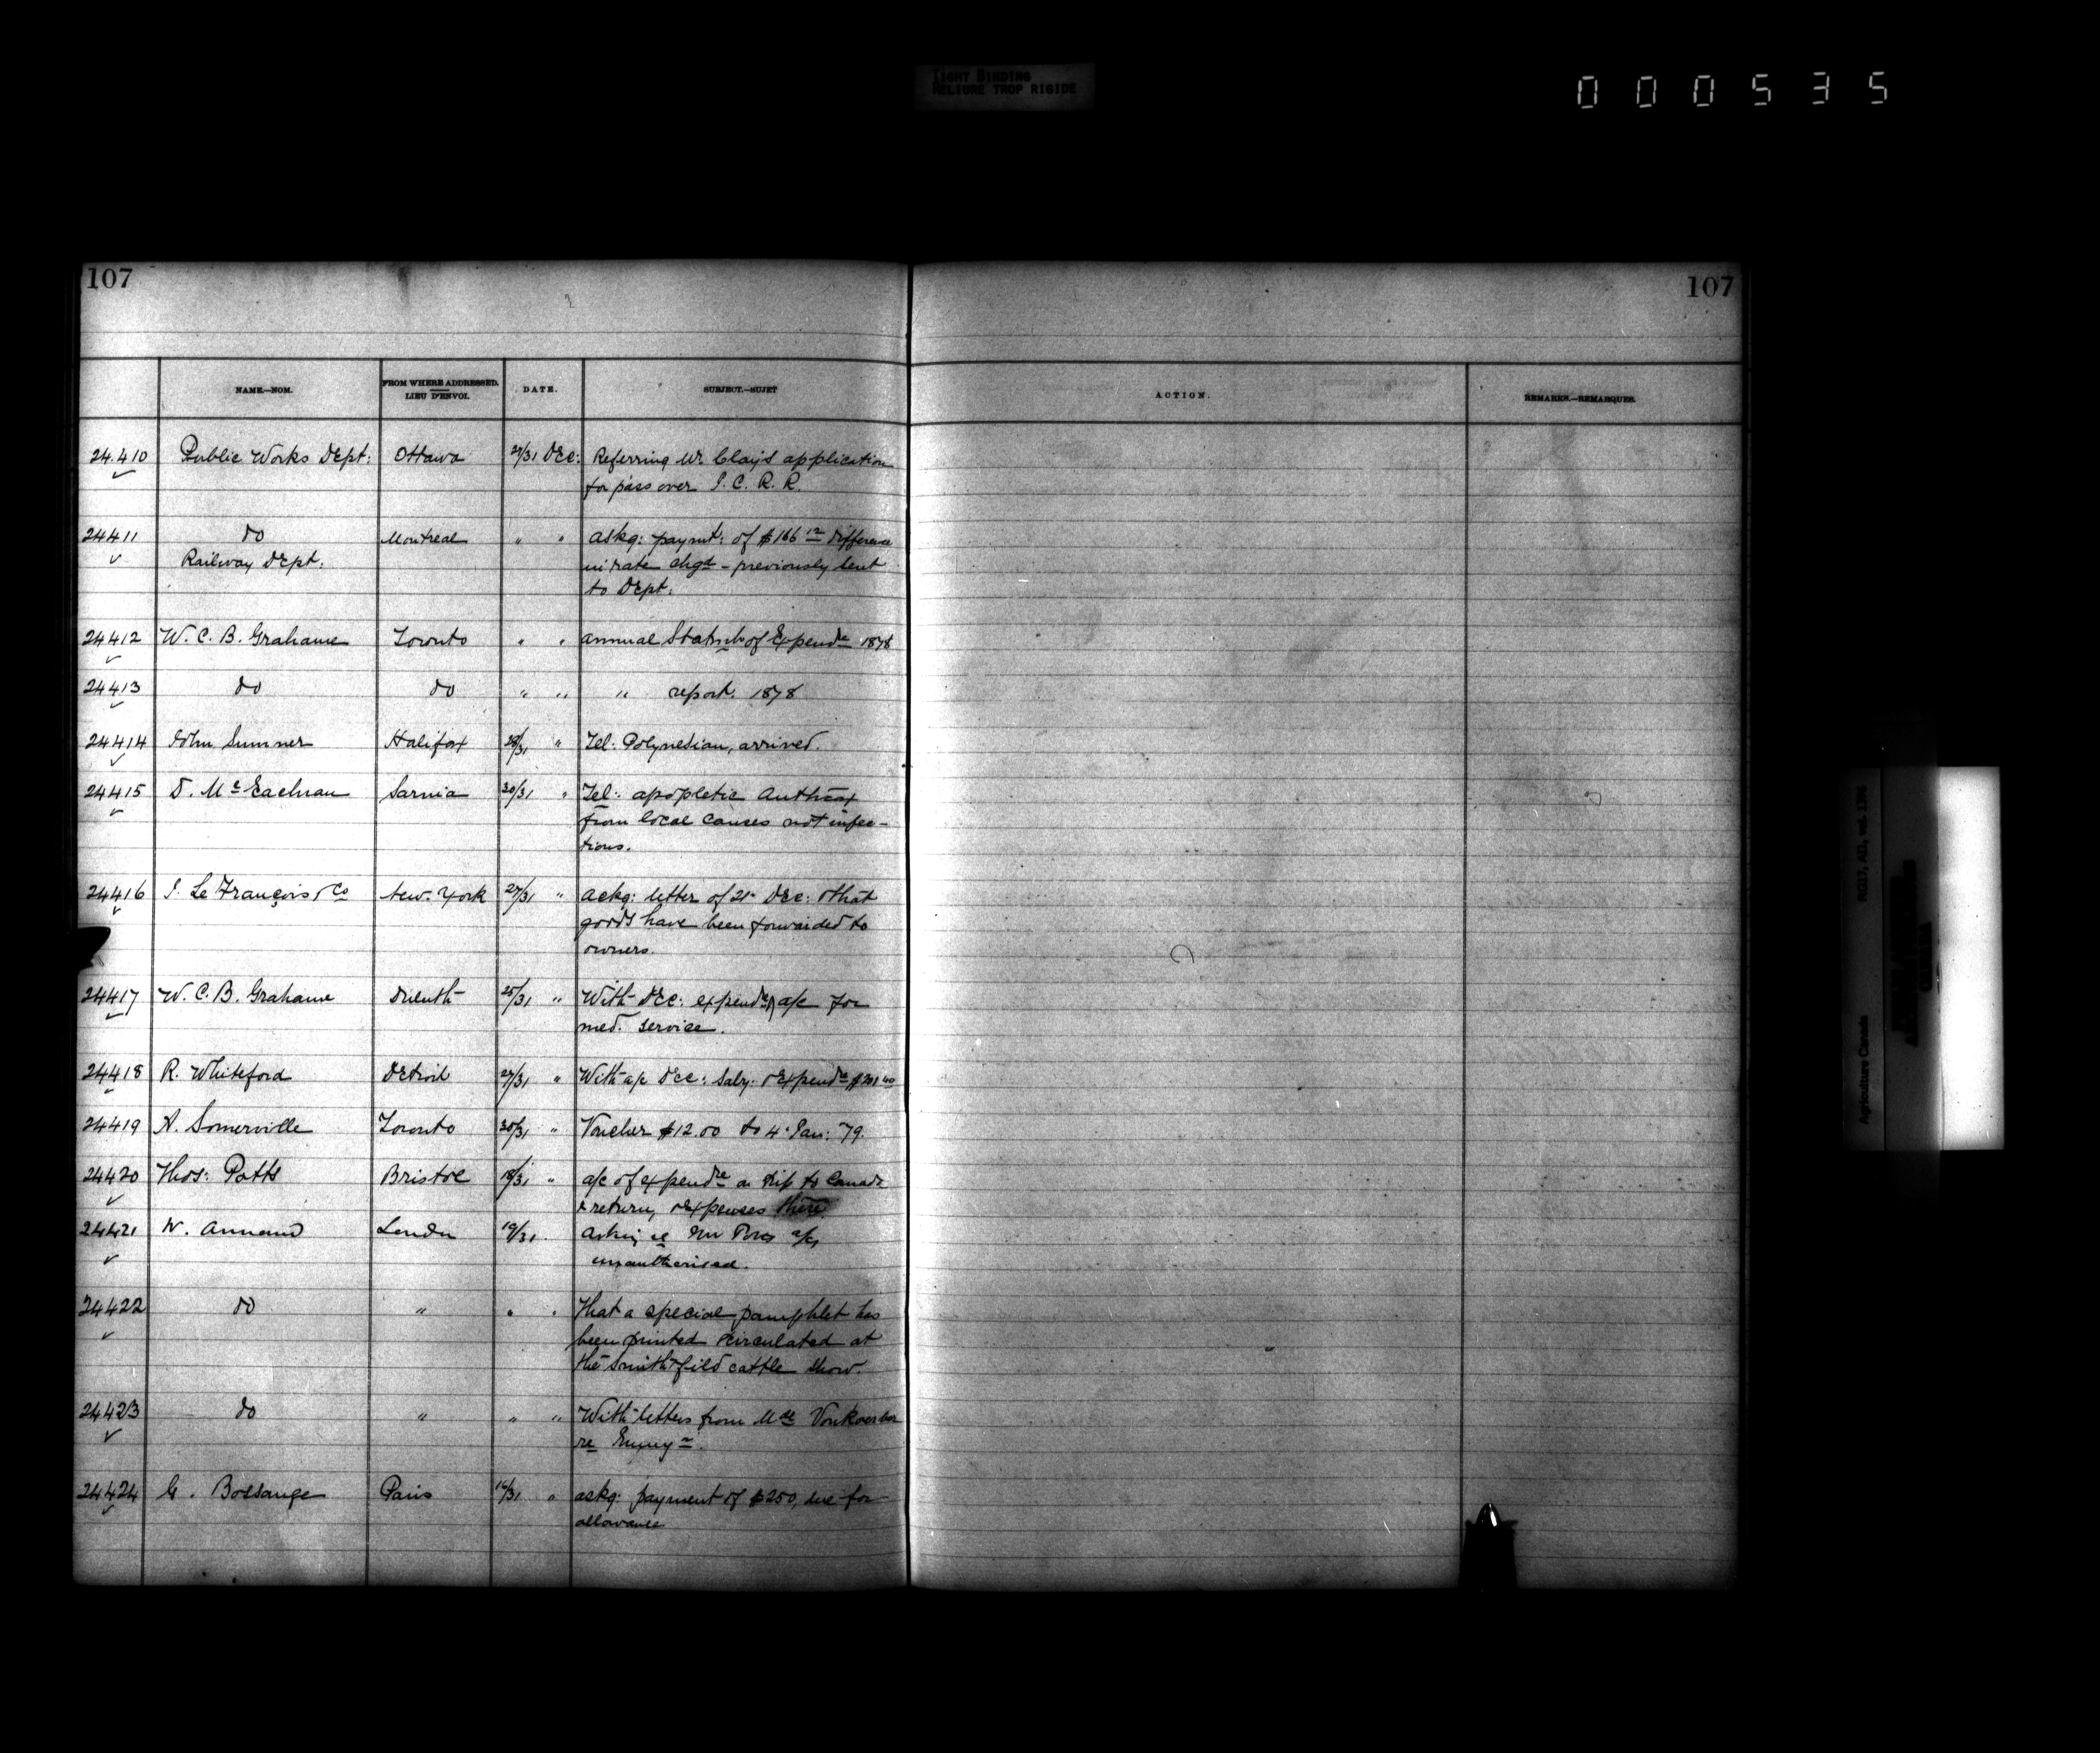 TIGHT BINDING
RELIURE TROP RIGIDE
000535
107
107
NAME.—NOM.
FROM WHERE ADDRESSED.
LIEU D'ENVOI.
DATE.
SUBJECT.—SUJET
ACTION.
REMARKS.—REMARQUES.
24.410 Public Works Dept: Ottawa 27/31 Dec: Referring Mr Clay's application
for pass over I. C. R. R.
24411 do Montreal " " askg: paymt: of $166 12 difference
Railway Dept. in rate chgd - previously sent
to Dept.
24412 W. C. B. Grahame Toronto " " annual Statmts of Expendre 1878
24413 do do " " " report. 1878
24414 John Sumner Halifax 28/31 " Tel: Polynesian, arrived.
24415 D. McEachran Sarnia 30/31 " Tel: apopletic Anthrax
from local causes not infec-
tious.
24416 J. Le François & Co New-York 27/31 " ackg: letter of 21st Dec: & that
goods have been forwarded to
owners.
24417 W. C. B. Grahame 25/31 " With Dec: expendre & a/c for
med. service.
24418 R. Whiteford Detroit 27/31 " With a/c Dec: Saly: & Expendre
24419 A. Somerville Toronto 30/31 " Voucher $12.00 to 4 Jan: 79.
24420 Thos: Potts Bristol 18/31 " a/c of expendre on trip to Canada
& return, & expenses there
24421 W. Annand London 19/31 asking re a/cs
unauthorised.
24422 do " " " That a special pamphlet has
been printed & circulated at
the Smithfild cattle show.
24423 do " " " With letters from
re Emmgn.
24424 G. Bossange Paris 16/31 " askg: payment of $250, due for
allowance
RG17, AII, vol. 1396
Agriculture Canada